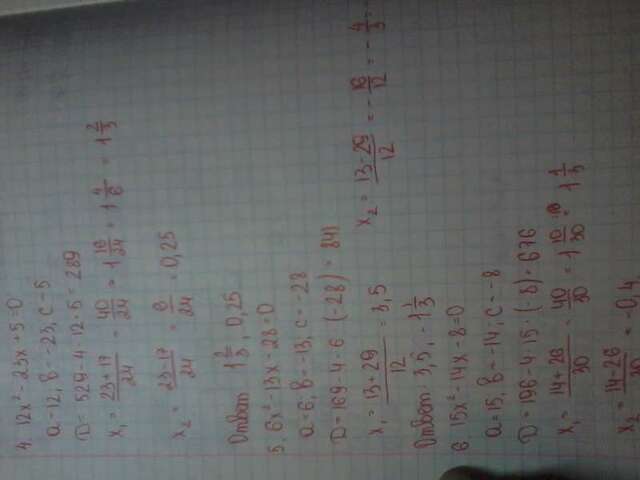 4. 12x² - 23x + 5 = 0
a = 12, b = -23, c = 5
D = 529 - 4 · 12 · 5 = 289
x₁ = (23+17)/24 = 40/24 = 1 16/24 = 1 4/6 = 1 2/3
x₂ = (23-17)/24 = 6/24 = 0,25
Ответ 1 2/3, 0,25
5. 6x² - 13x - 28 = 0
a = 6; b = -13, c = -28
D = 169 - 4 · 6 · (-28) = 841
x₁ = (13+29)/12 = 3,5 x₂ = (13-29)/12 = -16/12 = -4/3 =
Ответ: 3,5, -1 1/3
6. 15x² - 14x - 8 = 0
a = 15, b = -14; c = -8
D = 196 - 4 · 15 · (-8) = 676
x₁ = (14+26)/30 = 40/30 = 1 10/30 = 1 1/3
x₂ = (14-26)/30 = -0,4